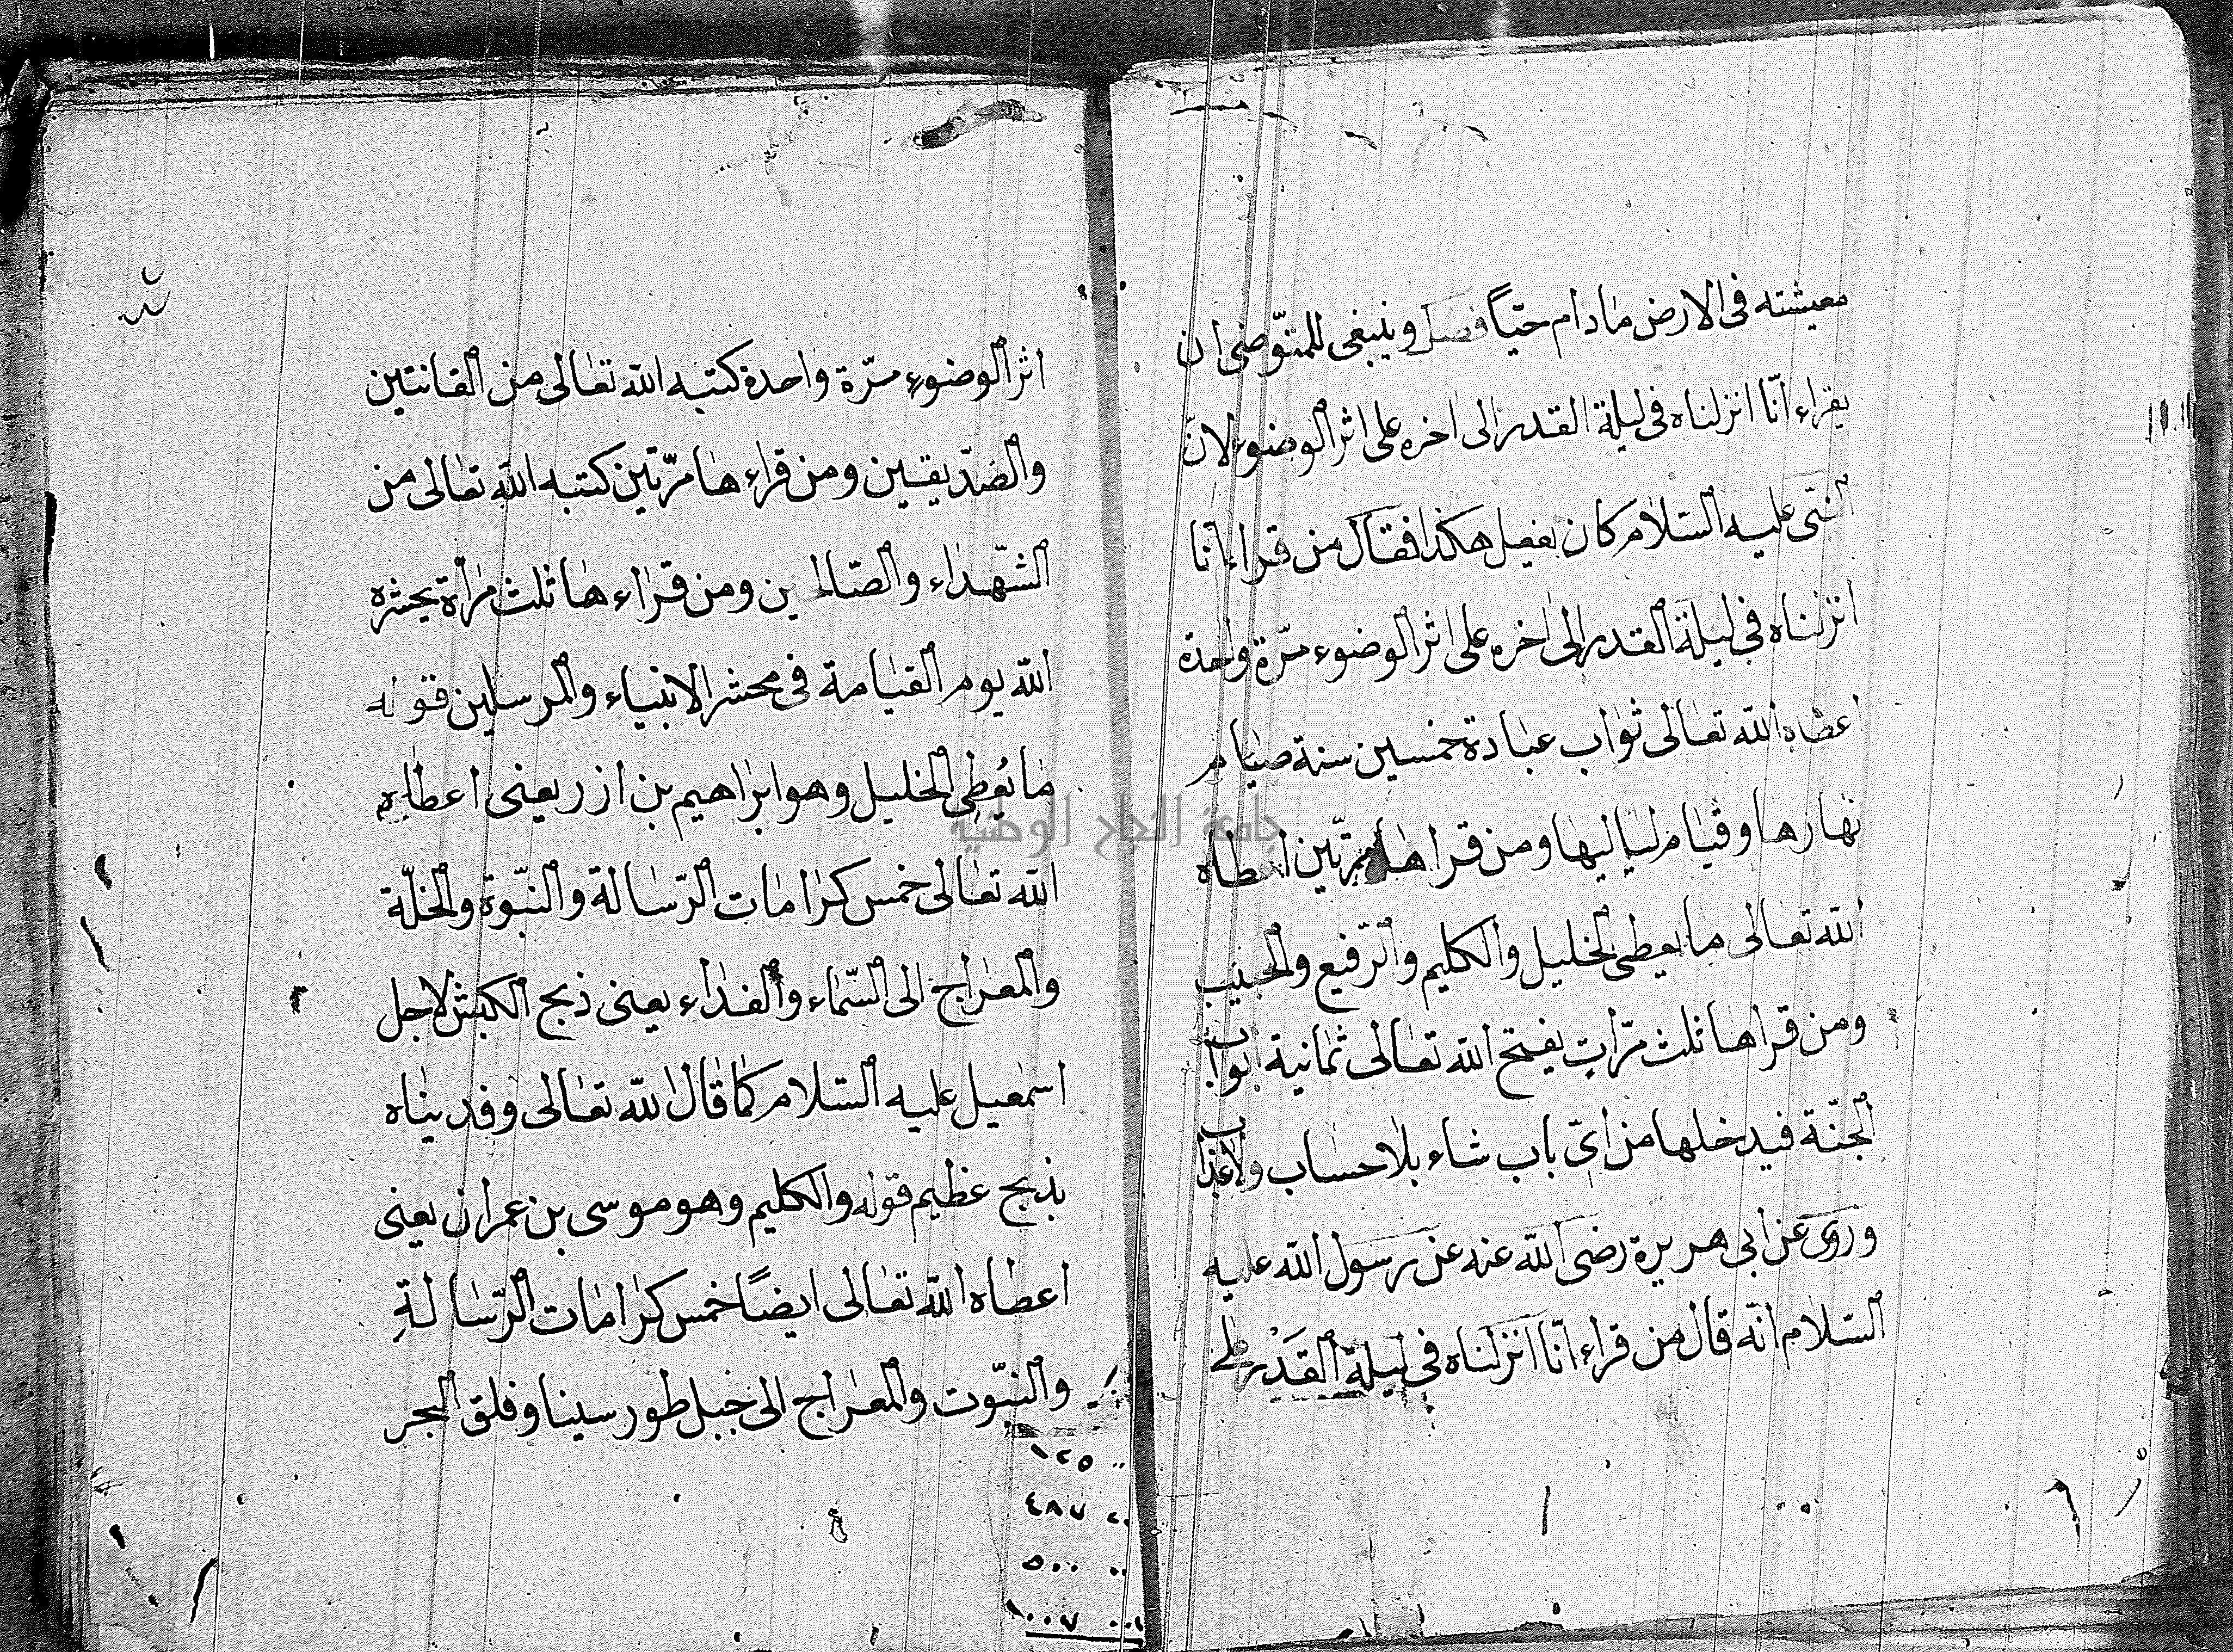 معيشته فى الارض مادام حيّاً فصل وينبغى للمتوّضى ان
يقراء انّا انزلناه فى ليلة القدر الى اخره على اثر الوضوء لانّ
النبّى عليه السّلام كان يفعل هكذا فقال من قراء انّا
انزلناه فى ليلة القدر الى اخره على اثر الوضوء مرّة واحدة
اعطاه الله تعالى ثواب عبادة خمسين سنة صيام
نهارها وقيام لياليها ومن قراها مرّتين اعطاه
الله تعالى ما يعطى الخليل والكليم والرّفيع والحبيب
ومن قراها ثلث مرّات يفتح الله تعالى ثمانية ابواب
الجنّة فيدخلها من اىّ باب شاء بلا حساب ولا عذاب
وروى عن ابى هريرة رضى الله عنه عن رسول الله عليه
السّلام انّه قال من قراء انّا انزلناه فى ليلة القَدْر على
اثر الوضوء مرّة واحدة كتبه الله تعالى من القانتين
والصّدّيقين ومن قراءها مرّتين كتبه الله تعالى من
الشّهداء والصّالحين ومن قراءها ثلث مراة يحشره
الله يوم القيامة فى محشر الانبياء والمرسلين قوله
ما يُعطى الخليل وهو ابراهيم بن ازر يعنى اعطاه
الله تعالى خمس كرامات الرّسالة والنبّوة والخلّة
والمعراج الى السّماء والفداء يعنى ذبح الكبش لاجل
اسمعيل عليه السّلام كما قال الله تعالى وفديناه
بذبح عظيم قوله والكليم وهو موسى بن عمران يعنى
اعطاه الله تعالى ايضاً خمس كرامات الرّسالةِ
والنبّوت والمعراج الى جبل طور سينا وفلق البحر
١٢٥
٤٨٧
٥٠٠
١٠٠٧
جامعة النجاح الوطنية